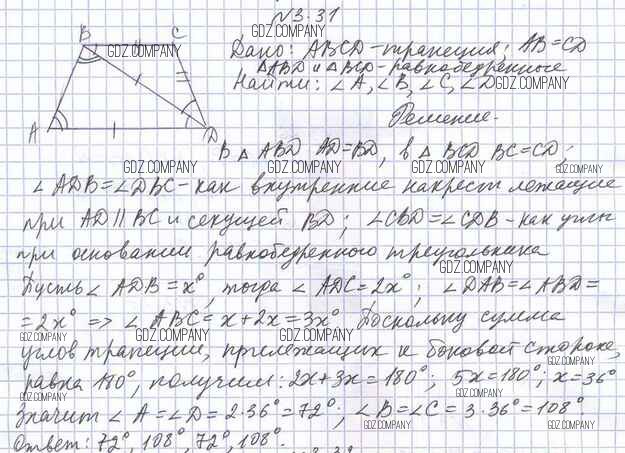 №3.31
GDZ.COMPANY
B C GDZ.COMPANY
Дано: ABCD-трапеция; AB=CD
△ABD и △BCD-равнобедренные
Найти: ∠A, ∠B, ∠C, ∠D GDZ.COMPANY
A D Решение.
В △ ABD AD=BD, в △ BCD BC=CD;
GDZ.COMPANY GDZ.COMPANY GDZ.COMPANY GDZ.COMPANY
∠ ADB=∠DBC-как внутренние накрест лежащие
при AD∥BC и секущей BD; ∠CBD=∠CDB-как углы
при основании равнобедренного треугольника
GDZ.COMPANY
Пусть ∠ ADB=x°, тогда ∠ ADC=2x°; ∠DAB=∠ABD=
=2x° => ∠ ABC=x+2x=3x° Поскольку сумма
GDZ.COMPANY GDZ.COMPANY GDZ.COMPANY
углов трапеции, прилежащих к боковой стороне,
GDZ.COMPANY
равна 180°, получим: 2x+3x=180°; 5x=180°; x=36°
GDZ.COMPANY GDZ.COMPANY
Значит ∠ A=∠D=2·36°=72°; ∠B=∠C=3·36°=108°.
GDZ.COMPANY GDZ.COMPANY GDZ.COMPANY
Ответ: 72°, 108°, 72°, 108°.